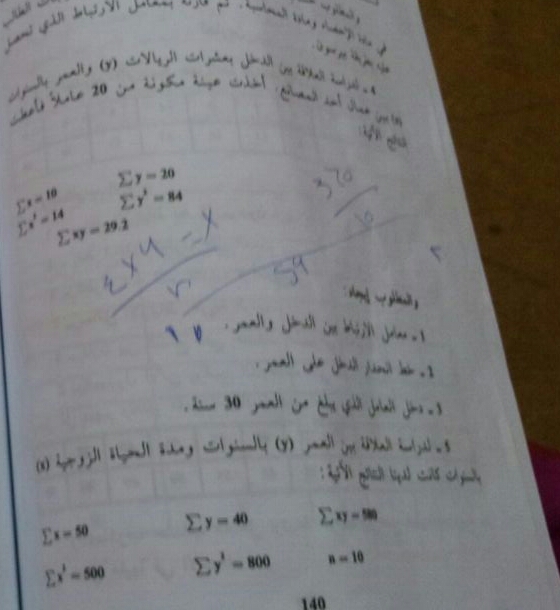 والمطلوب
في مادة الإحصاء ومادة المحاسبة. ثم قارنه بمعامل الارتباط الذي تحصل
4 - لدراسة العلاقة بين الدخل بعشرات الريالات (y) والعمر بالسنوات
(x) بين عمال أحد المصانع. أخذت عينة مكونة من 20 عاملاً فأعطت
النتائج الآتية:
∑x = 10 ∑y = 20
∑x² = 14 ∑y² = 84
∑xy = 29.2
320
10
54
والمطلوب إيجاد:
1 - معامل الارتباط بين الدخل والعمر.
2 - خط انحدار الدخل على العمر.
3 - دخل العامل الذي يبلغ من العمر 30 سنة.
5 - لدراسة العلاقة بين العمر (y) بالسنوات ومدة الحياة الزوجية (x)
بالسنوات كانت لدينا النتائج الآتية:
∑x = 50 ∑y = 40 ∑xy = 580
∑x² = 500 ∑y² = 800 n = 10
140